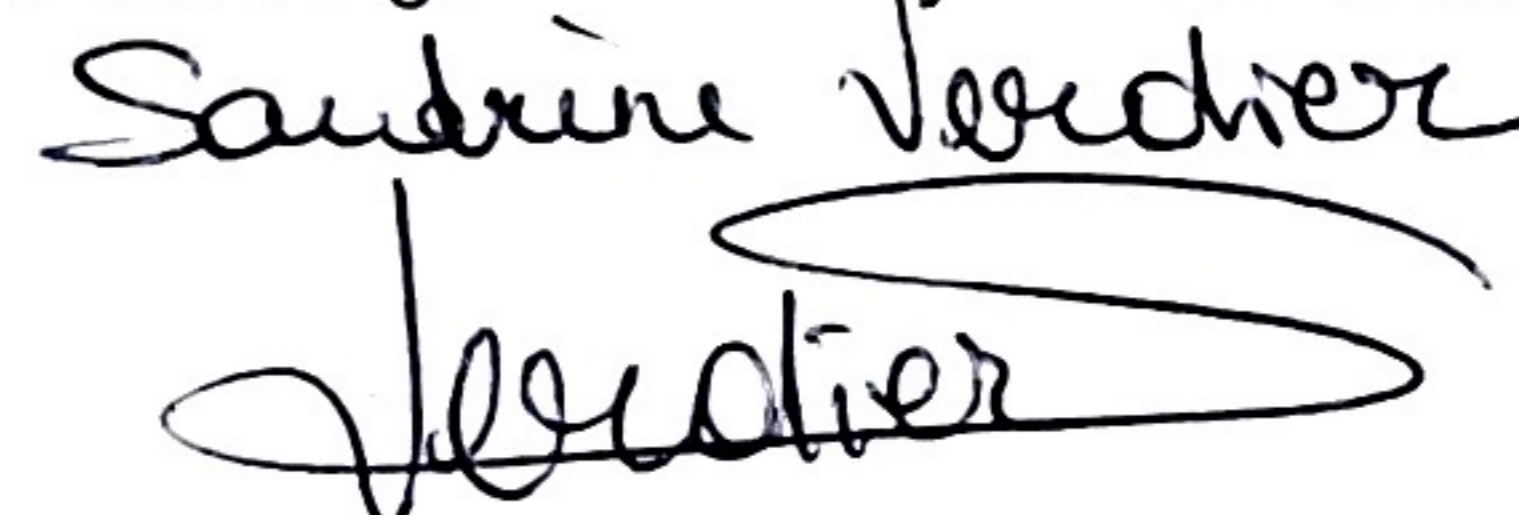 Sandrine Verdier
Verdier